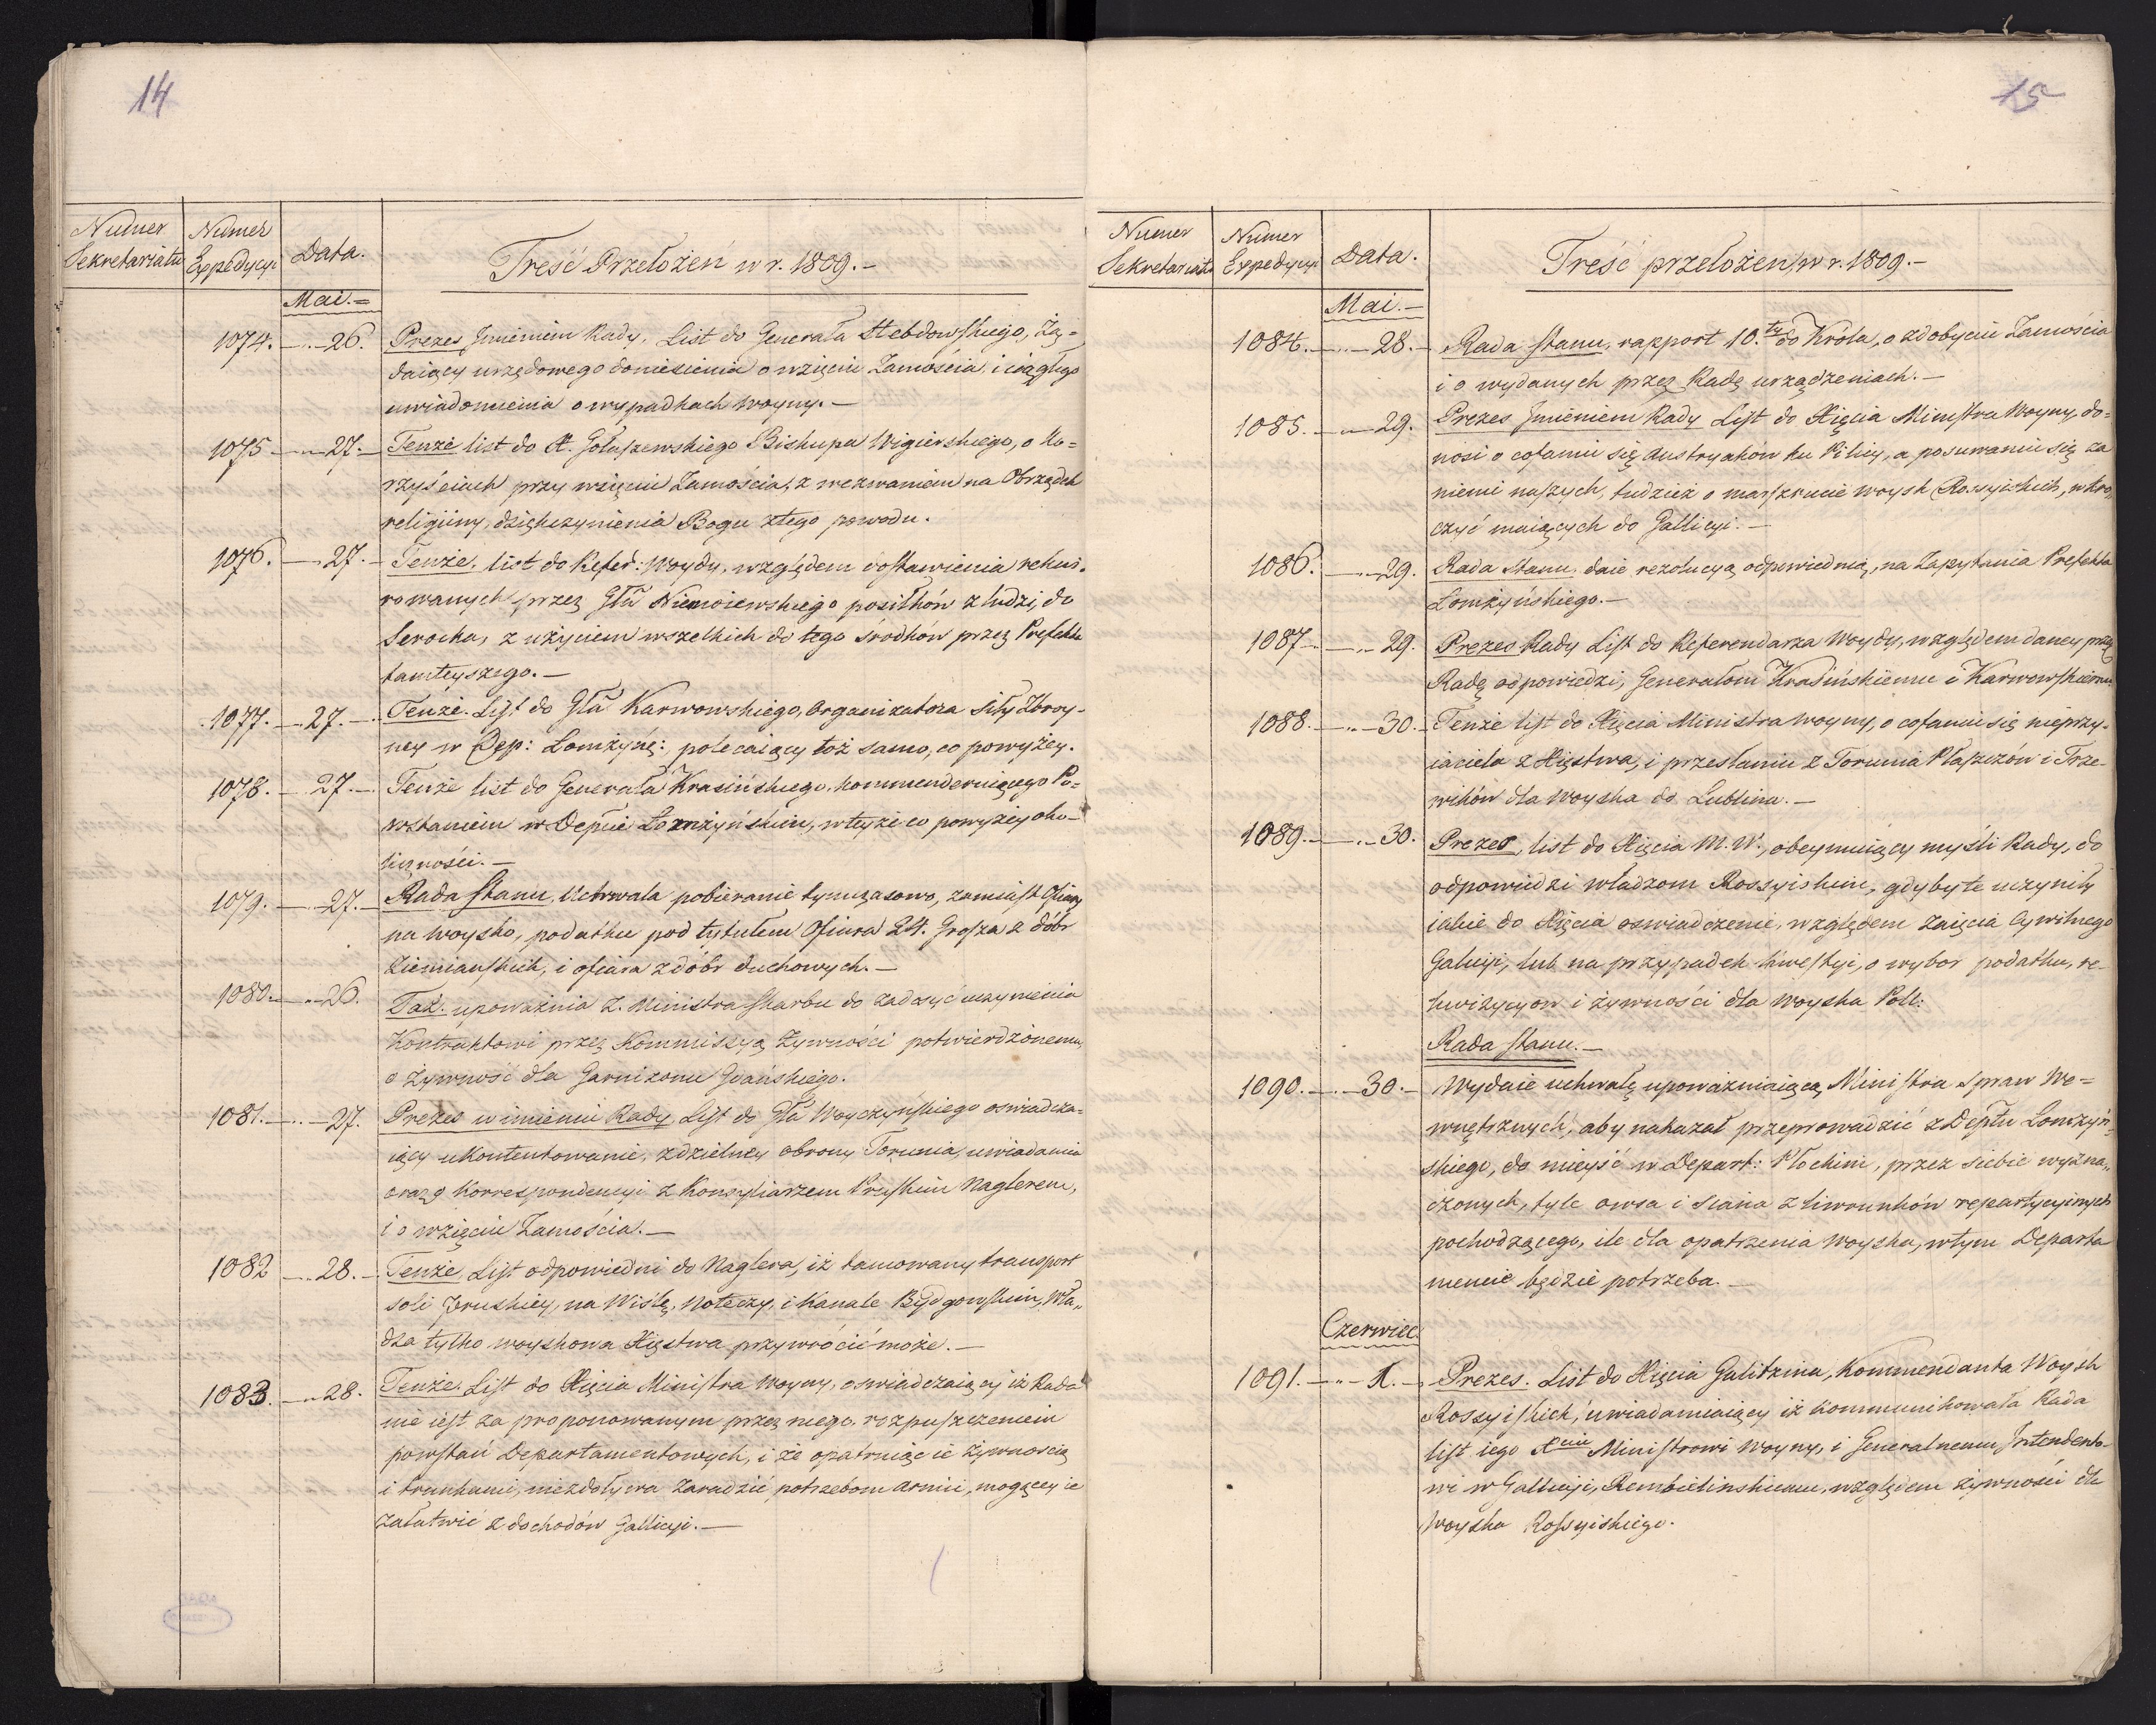 14
Numer Sekretariatu
Numer Expedycyi
Data.
Treść Przełożeń w r. 1809.-
Mai.=
1074. -..- 26. Prezes Jmieniem Rady, List do Generała Hebdowskiego, żą=
daiący urzędowego doniesienia o wzięciu Zamościa, i ciągłego
uwiadomienia o wypadkach woyny.-
1075 -..- 27. - Tenże list do X. Gołaszewskiego Biskupa Wigierskiego, o Ko=
rzyściach przy wzięciu Zamościa, z wezwaniem na Obrządek
religiiny, dziękczynienia Bogu z tego powodu.
1076. -..- 27. - Tenże. list do Refer: Woydy, względem dostawienia rekwi-
rowanych przez Gła Niemoiewskiego posiłków z ludzi, do
Serocka, z użyciem wszelkich do tego środków przez Prefekta
tamteyszego.-
1077. -..- 27. - Tenże. List do Gła Karwowskiego, Organizatora Siły Zbroy-
ney w Dep: Łomżyńs:, polecaiący toż samo, co powyżey.
1078. - 27. - Tenże list do Generała Krasińskiego, kommenderuiącego Po=
wstaniem w Depcie Łomżyńskim, w teyże co powyżey oko-
liczności.-
1079. -..- 27. - Rada Stanu, Uchwala pobieranie tymczasowo, zamiast Ofiary
na woysko, podatku pod tytułem Ofiara 24. Grosza z dóbr
Ziemiańskich, i ofiara z dóbr duchownych.-
1080. -..- 26. Taż. upoważnia Z. Ministra Skarbu do zadosyć uczynienia
Kontraktowi przez Kommissyą Żywności potwierdzonemu,
o żywność dla Garnizonu Gdańskiego.
1081. -..- 27. Prezes w imieniu Rady List do Gła Woyczyńskiego oswiadcza=
iący ukontentowanie, z dzielney obrony Torunia, uwiadamia
oraz o Korrespondencyi z Konsyliarzem Pruskim Naglerem,
i o wzięciu Zamościa.-
1082 -..- 28. - Tenże. List odpowiedni do Naglera, iż tamowany transport
soli pruskiey, na Wiśle, Noteczy, i Kanale Bydgowskim, Wła„
dza tylko woyskowa Xięstwa przywrócić może.-
1083. -..- 28. Tenże. List do Xięcia Ministra Woyny, oswiadczaiący iż Rada
nie iest za proponowanym przez niego rozpuszczeniem
powstań Departamentowych, i że opatruiąc ie żywnoscią
i trunkami, niezdoływa zaradzić potrzebom armii, mogącey ie
załatwić z dochodów Gallicyi.-
15
Numer Sekretariatu
Numer Expedycyi
Data.
Treść przełożeń w r. 1809.-
Mai.-
1084. -..- 28. - Rada Stanu, rapport 10.ty do Króla, o zdobyciu Zamościa
i o wydanych przez Radę urządzeniach.-
1085. -..- 29. Prezes Jmieniem Rady List do Xięcia Ministra Woyny, do=
nosi o cofaniu się Austryaków ku Pilicy, a posuwaniu się za
niemi naszych, tudzież o marszrucie woysk Rossyiskich, wkro„
czyć maiących do Gallicyi.-
1086. -..- 29. Rada Stanu. daie rezolucyą odpowiednią, na Zapytania Prefekta
Łomżyńskiego.-
1087 -..- 29. Prezes Rady List do Referendarza Woydy, względem daney przez
Radę odpowiedzi, Generałom Krasińskiemu i Karwowskiemu.
1088. -..- 30. - Tenże list do Xięcia Ministra Woyny, o cofaniu się nieprzy-
iaciela z Xięstwa, i przesłaniu z Torunia Płaszczów i Trze-
wików dla Woyska do Lublina.-
1089. -..- 30. Prezes, list do Xięcia M. W., obeymuiący myśli Rady, do
odpowiedzi władzom Rossyiskim, gdyby te uczyniły
iakie do Xięcia oswiadczenie, względem zaięcia Cywilnego
Galicyi, lub na przypadek kwestyi, o wybor podatku, re-
kwizycyow i żywności dla Woyska Poll:
Rada Stanu.-
1090. -..- 30. - Wydaie uchwałę upoważniaiącą Ministra Spraw We=
wnętrznych, aby nakazał przeprowadzić z Deptu Łomżyń„
skiego, do mieysć w Depart: Płockim, przez siebie wyzna„
czonych, tyle owsa i siana z liwrunków repartycyinych
pochodzącego, ile dla opatrzenia Woyska, w tym Departa
mencie będzie potrzeba.-
Czerwiec.
1091. -..- 1. - Prezes. List do Xięcia Galitzina, Kommendanta Woysk
Rossyiskich, uwiadamiaiący iż kommunikowała Rada
list iego Xciu Ministrowi Woyny, i Generalnemu Intendento-
wi w Gallicyi, Rembielinskiemu, względem żywności dla
Woyska Rossyiskiego.